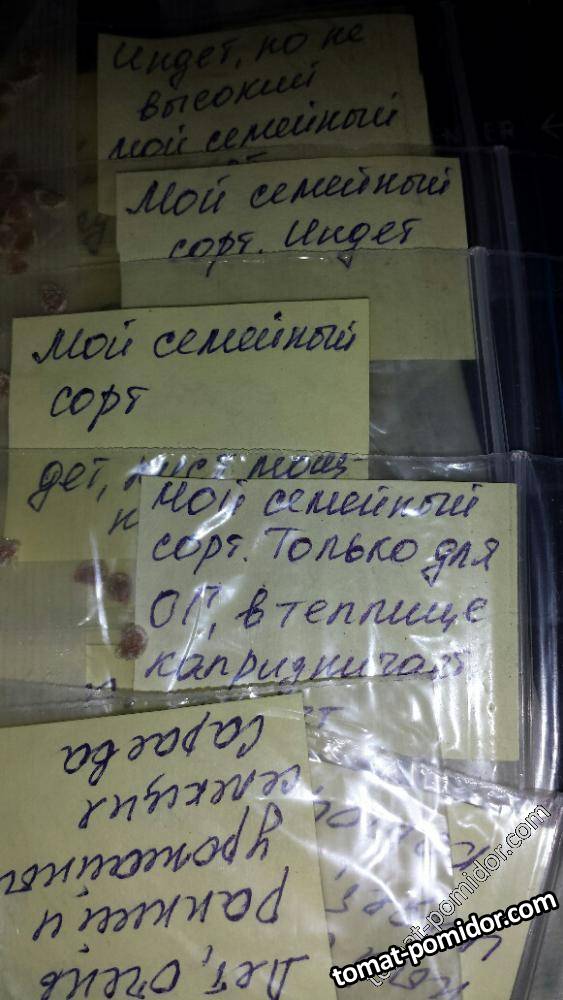 Индет, но не
высокий
мой семейный
Мой семейный
сорт. Индет
Мой семейный
сорт
дет, куст мощ-
Мой семейный
сорт. Только для
ОГ, в теплице
капризничает
Дет, очень
ранний и
урожайный
селекция
Сараева
tomat-pomidor.com
tomat-pomidor.com